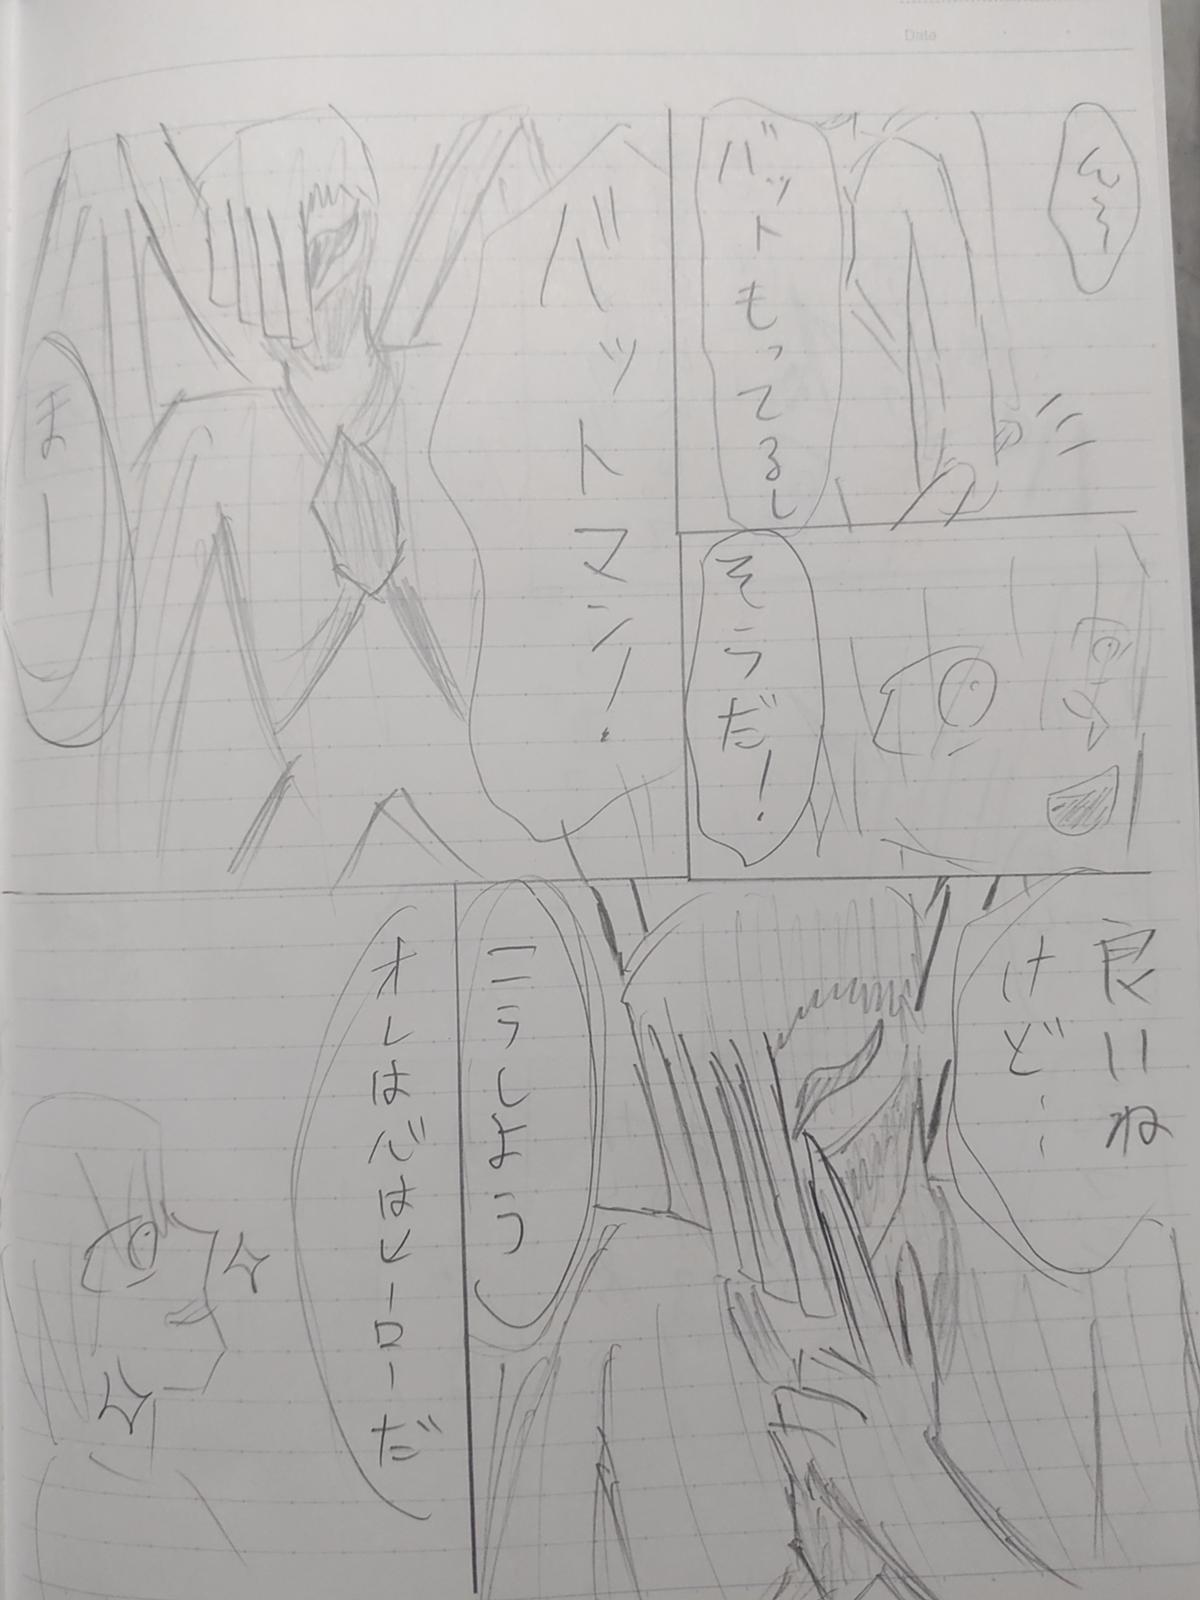 ん〜
バットもってるし
そうだ!
バットマン!
まー
良いね
けど…
こうしよう
オレは心はヒーローだ
Date